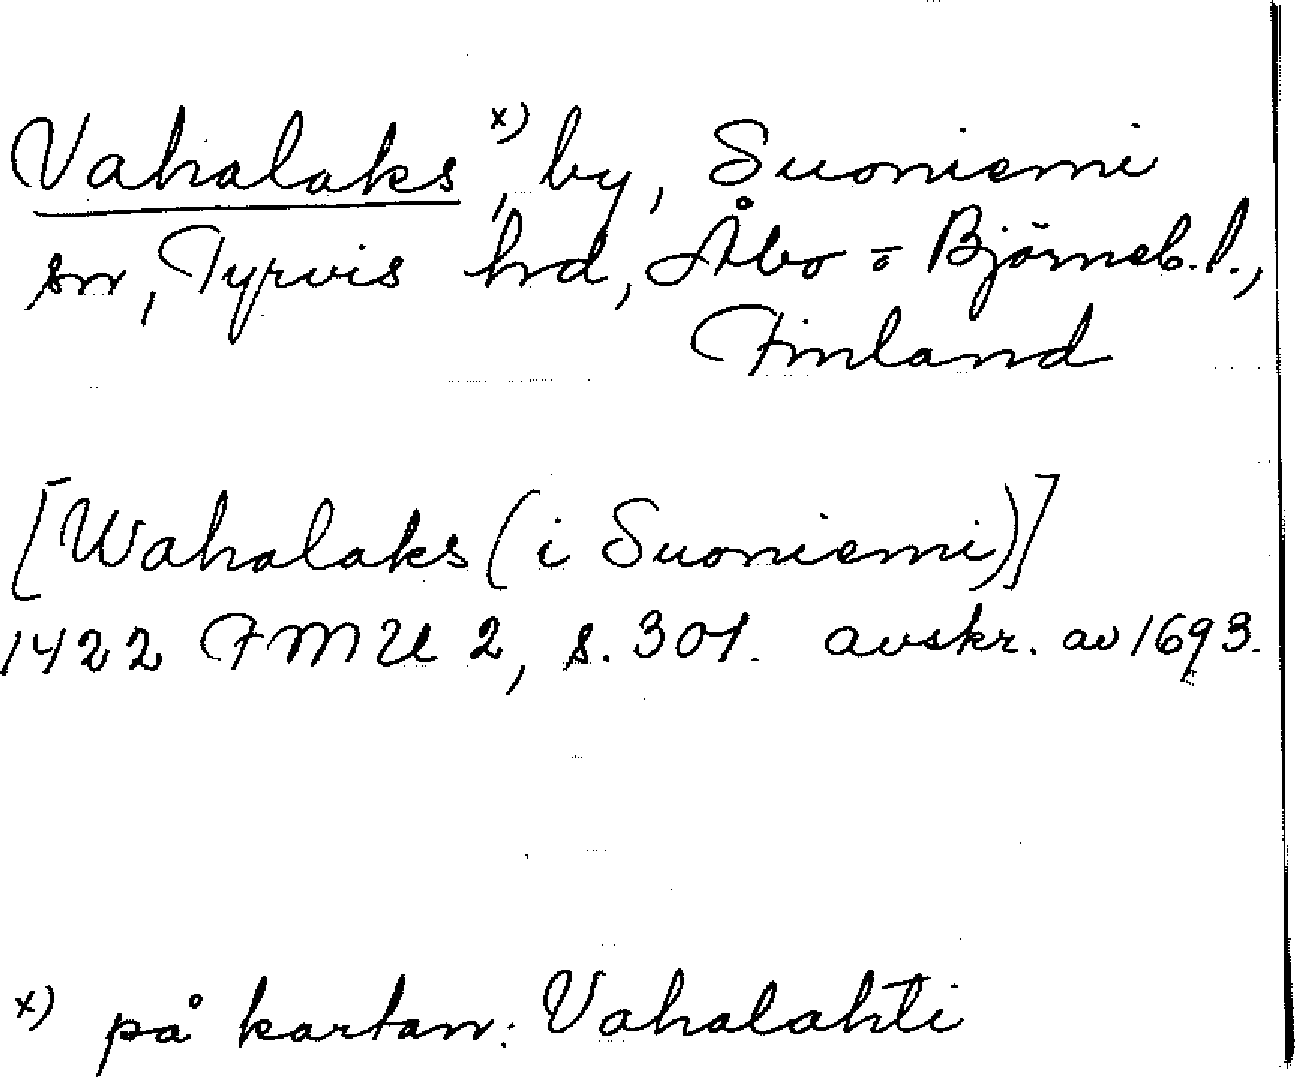 Vahalaks x), by, Suoniemi
sn, Tyrvis hd, Åbo = Björneb. l.,
Finland
[Wahalaks (i Suoniemi)]
1422 FMU 2, s. 301. avskr. av 1693.
x) på kartan: Vahalahti